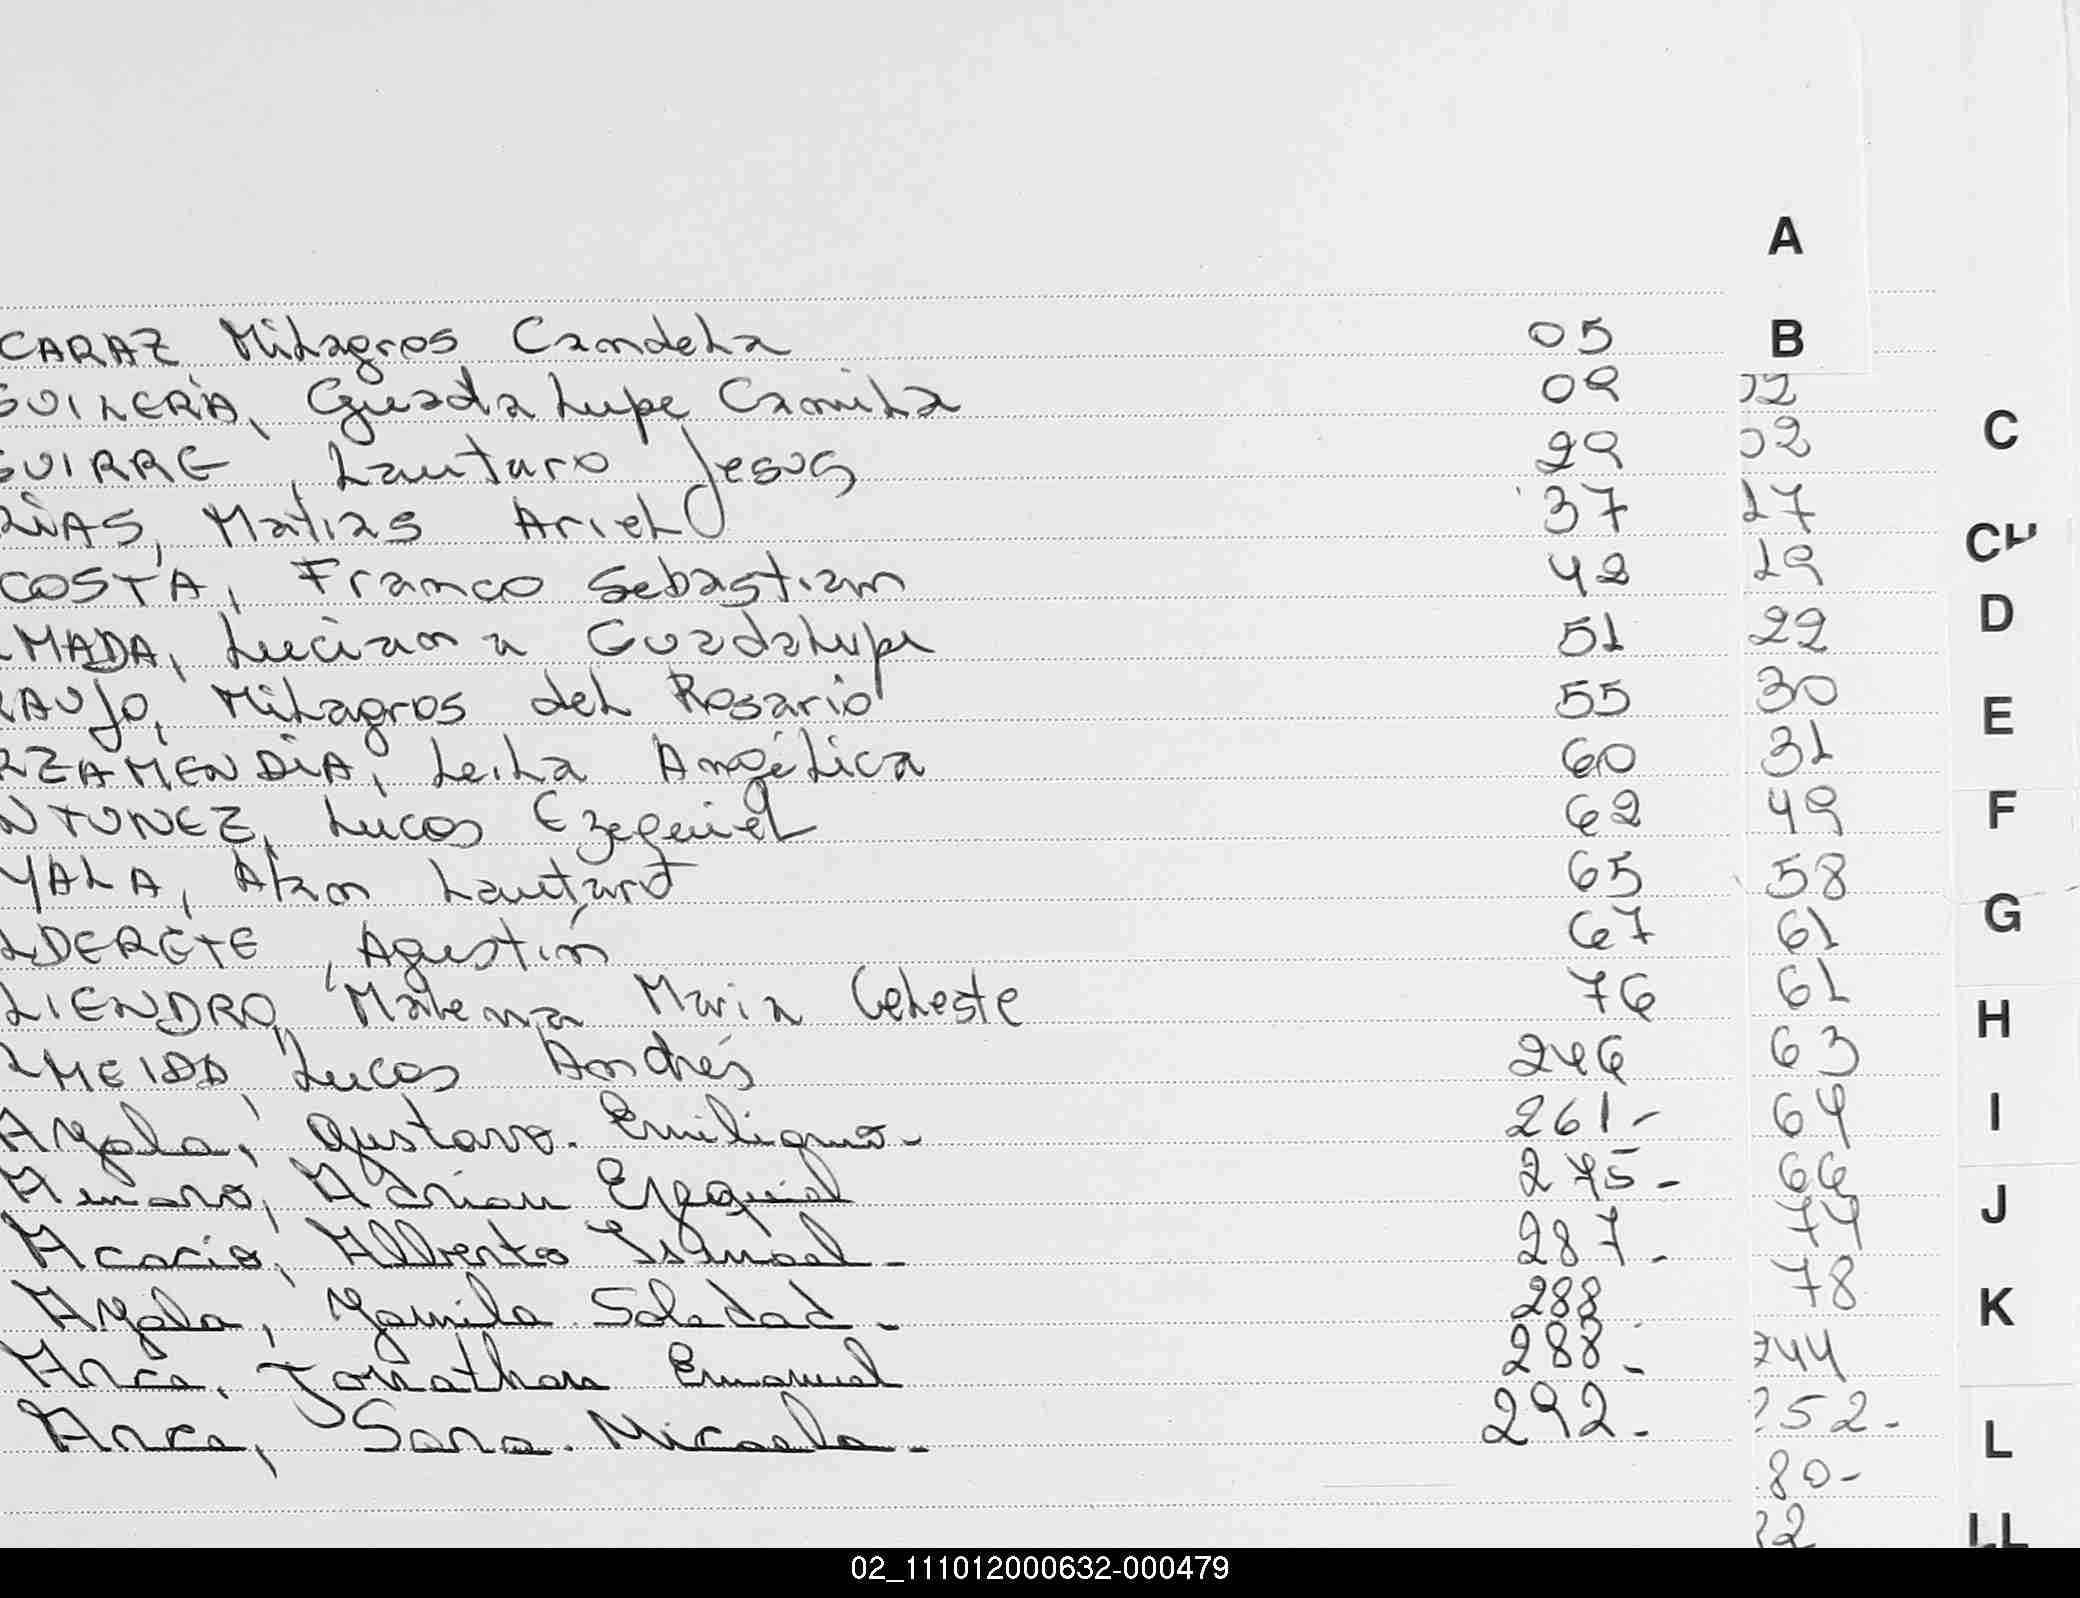 A
B
CARAZ Milagros Candela 05
GUILERA, Guadalupe Camila 09 02
GUIRRE, Lautaro Jesus 29 02
C
RIAS, Matias Ariel 37 17
COSTA, Franco Sebastian 42 19
CH
LMADA, Luciana Guadalupe 51 22
D
RAUJO, Milagros del Rosario 55 30
E
RZAMENDIA, Leila Angélica 60 31
NTUNEZ, Lucas Ezequiel 62 49
F
YALA, Alan Lautaro 65 58
LDERETE, Agustín 67 61
G
LIENDRO, Malena Maria Celeste 76 61
H
LMEIDA, Lucas Andrés 246 63
Ayala, Gustavo Emiliano. 261- 64
I
Amaro, Adrian Ezequiel 275- 66
J
Acacio, Alberto Ismael. 287. 74
Ayala, Yamila Soledad. 288 78
K
Arce, Jonathan Emanuel 288. 244
Arce, Sara Micaela. 292. 252.
L
80-
LL